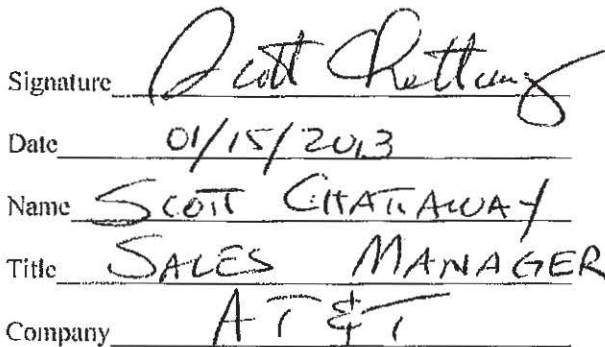 Signature Scott Chattaway
Date 01/15/2013
Name SCOTT CHATTAWAY
Title SALES MANAGER
Company AT&T